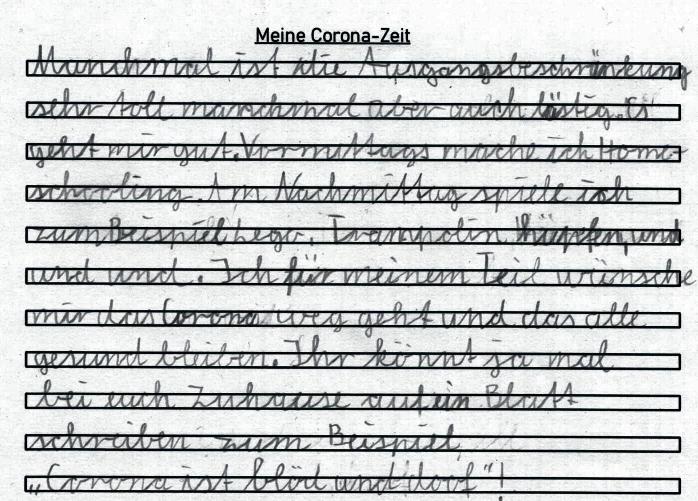 Meine Corona-Zeit
Manchmal ist die Ausgangsbeschränkung
sehr toll manchmal aber auch lästig. Es
geht mir gut. Vormittags mache ich Home-
schooling. Am Nachmittag spiele ich
zum Beispiel Lego. Trampolin hüpfen, und
und und. Ich für meinem Teil wünsche
mir das Corona weg geht und das alle
gesund bleiben. Ihr könnt ja mal
bei euch Zuhause auf ein Blatt
schreiben zum Beispiel
„Corona ist blöd und doof"!